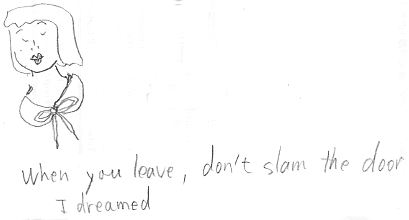 When you leave, don't slam the door
I dreamed